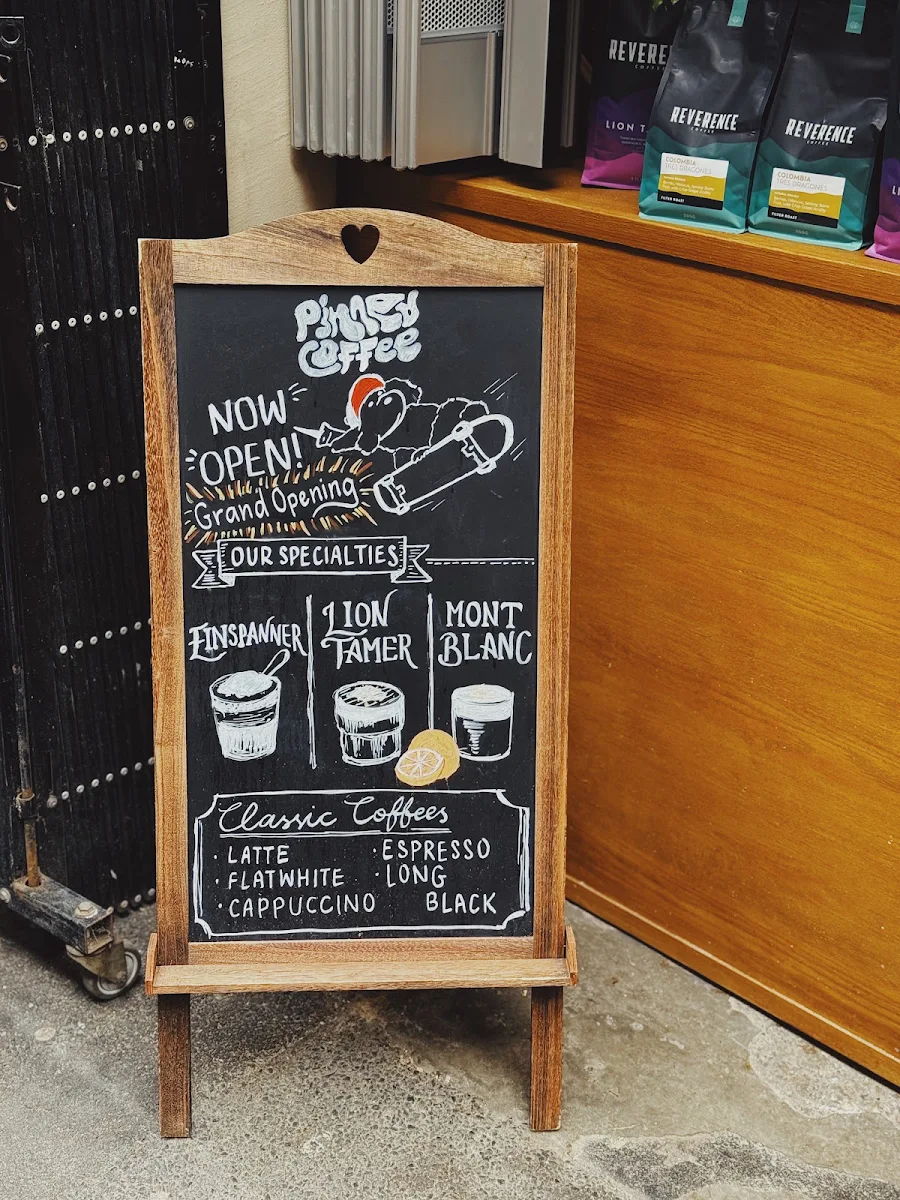 REVERENCE
COFFEE
LION T
REVERENCE
COFFEE
COLOMBIA
TRES DRAGONES
FILTER ROAST
REVERENCE
COFFEE
COLOMBIA
TRES DRAGONES
FILTER ROAST
Pinned
Coffee
NOW
OPEN!
Grand Opening
OUR SPECIALTIES
EINSPANNER
LION
TAMER
MONT
BLANC
Classic Coffees
· LATTE
· FLATWHITE
· CAPPUCCINO
· ESPRESSO
· LONG
BLACK